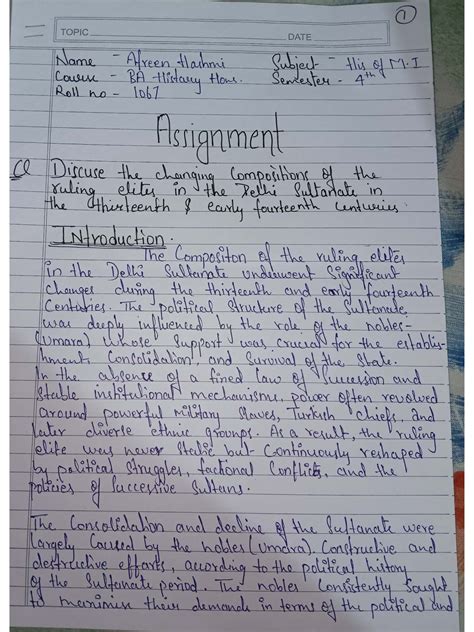 1
TOPIC
DATE
Name - Afreen Hashmi Subject - His of M.I
Course - BA History Hons. Semester - 4th
Roll no - 1067
Assignment
Q Discuse the changing Compositions of the
ruling elites in the Delhi Sultanate in
the thirteenth & early fourteenth centuries.
INtroduction.
The Compositon of the ruling elites
in the Delhi Sultanate underwent Significant
changes during the thirteenth and early fourteenth
Centuries. The political Structure of the Sultanate
was deeply influenced by the role of the nobles-
(umara) whose Support was crucial for the establis-
hment, Consolidation, and Survival of the State.
In the absence of a fined law of Succession and
Stable institutional mechanisms, power often revolved
around powerful military Slaves, Turkish chiefs, and
later diverse ethnic groups. As a result, the ruling
elite was never Static but Continuously reshaped
by political Struggles, factional Conflicts, and the
policies of Successive Sultans.
The Consolidation and decline of the Sultanate were
largely Caused by the nobles (umara). Constructive and
destructive efforts, according to the political history
of the Sultanate period. The nobles Consistently Sought
to maximise their demands in terms of the political and